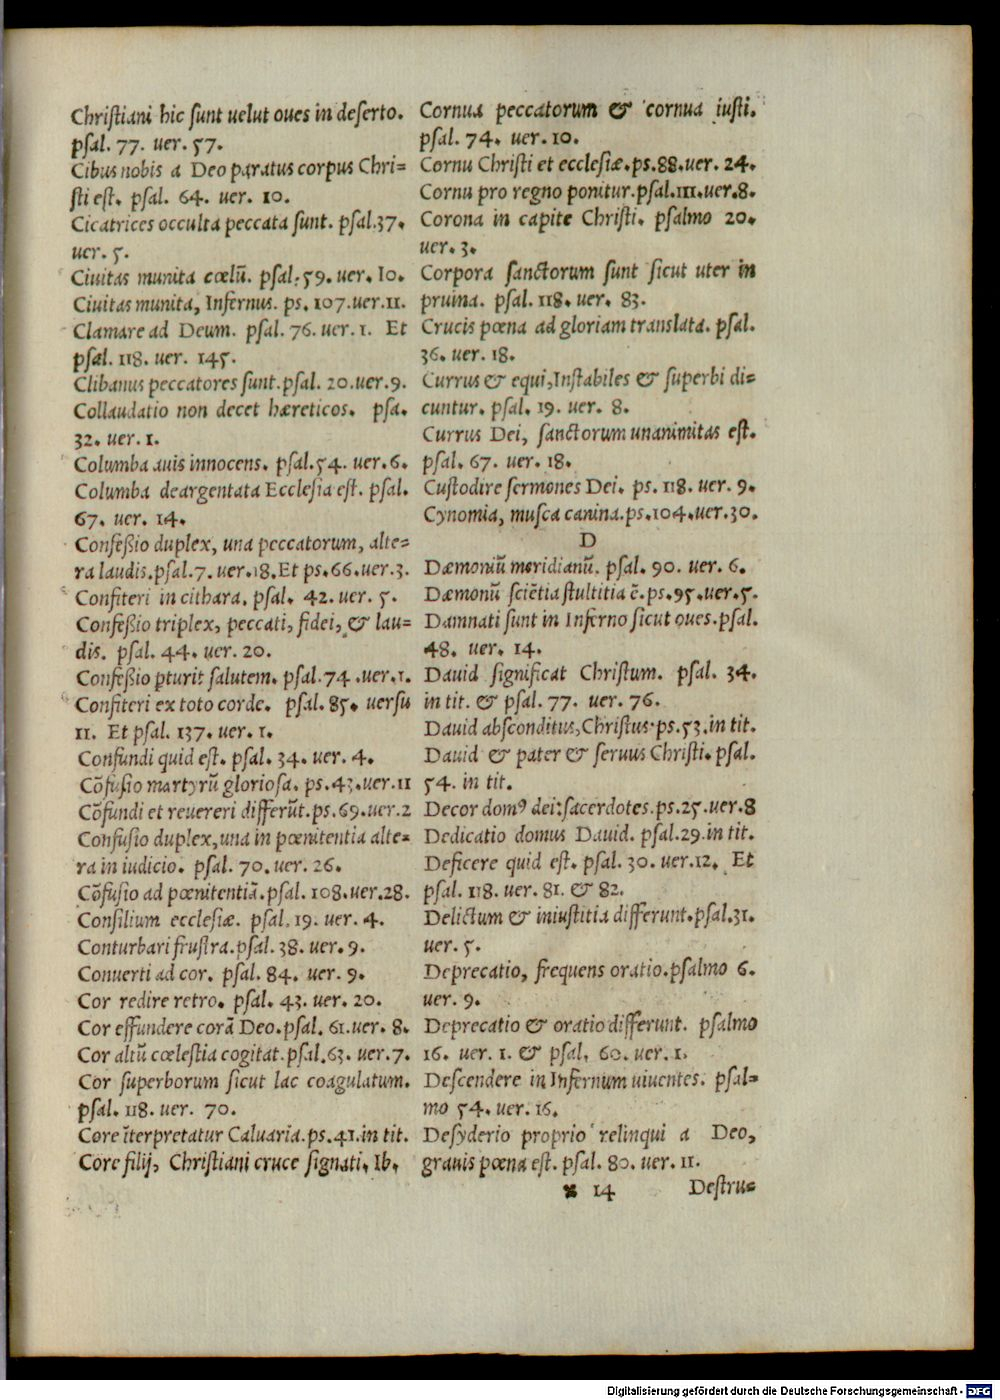 Chriſtiani hic ſunt uelut oues in deſerto.
pſal. 77. uer. 57.
Cibus nobis a Deo paratus corpus Chri=
ſti eſt. pſal. 64. uer. 10.
Cicatrices occulta peccata ſunt. pſal.37.
uer. 5.
Ciuitas munita cœlū. pſal.59. uer. 10.
Ciuitas munita, Infernus. ps. 107.uer.11.
Clamare ad Deum. pſal. 76. uer. 1. Et
pſal. 118. uer. 145.
Clibanus peccatores ſunt.pſal. 20.uer.9.
Collaudatio non decet hæreticos. pſa.
32. uer. 1.
Columba auis innocens. pſal.54. uer.6.
Columba deargentata Eccleſia eſt. pſal.
67. uer. 14.
Confeßio duplex, una peccatorum, alte=
ra laudis.pſal.7. uer.18.Et ps.66.uer.3.
Confiteri in cithara. pſal. 42. uer. 5.
Confeßio triplex, peccati, fidei, & lau=
dis. pſal. 44. uer. 20.
Confeßio pturit ſalutem. pſal.74.uer.1.
Confiteri ex toto corde. pſal.85. uerſu
11. Et pſal. 137. uer. 1.
Confundi quid eſt. pſal. 34. uer. 4.
Cōfuſio martyrū glorioſa. ps.43.uer.11
Cōfundi et reuereri differūt.ps.69.uer.2
Confuſio duplex,una in pœnitentia alte=
ra in iudicio. pſal. 70. uer. 26.
Cōfuſio ad pœnitentiā.pſal. 108.uer.28.
Conſilium eccleſiæ. pſal. 19. uer. 4.
Conturbari fruſtra.pſal. 38. uer. 9.
Conuerti ad cor. pſal. 84. uer. 9.
Cor redire retro. pſal. 43. uer. 20.
Cor effundere corā Deo.pſal. 61.uer. 8.
Cor altū cœleſtia cogitat.pſal.63. uer.7.
Cor ſuperborum ſicut lac coagulatum.
pſal. 118. uer. 70.
Core īterpretatur Caluaria.ps.41.in tit.
Core filij, Chriſtiani cruce ſignati. Ib.
Cornua peccatorum & cornua iuſti.
pſal. 74. uer. 10.
Cornu Chriſti et eccleſiæ.ps.88.uer. 24.
Cornu pro regno ponitur.pſal.111.uer.8.
Corona in capite Chriſti. pſalmo 20.
uer. 3.
Corpora ſanctorum ſunt ſicut uter in
pruina. pſal. 118. uer. 83.
Crucis pœna ad gloriam translata. pſal.
36. uer. 18.
Currus & equi,Inſtabiles & ſuperbi di=
cuntur. pſal. 19. uer. 8.
Currus Dei, ſanctorum unanimitas eſt.
pſal. 67. uer. 18.
Cuſtodire ſermones Dei. ps. 118. uer. 9.
Cynomia, muſca canina.ps.104.uer.30.
D
Dæmoniū meridianū. pſal. 90. uer. 6.
Dæmonū sciētia ſtultitia ē.ps.95.uer.5.
Damnati ſunt in Inferno ſicut oues.pſal.
48. uer. 14.
Dauid ſignificat Chriſtum. pſal. 34.
in tit. & pſal. 77. uer. 76.
Dauid abſconditus,Chriſtus.ps.53.in tit.
Dauid & pater & ſeruus Chriſti. pſal.
54. in tit.
Decor domꝰ dei:ſacerdotes.ps.25.uer.8
Dedicatio domus Dauid. pſal.29.in tit.
Deficere quid eſt. pſal. 30. uer.12. Et
pſal. 118. uer. 81. & 82.
Delictum & iniuſtitia differunt.pſal.31.
uer. 5.
Deprecatio, frequens oratio.pſalmo 6.
uer. 9.
Deprecatio & oratio differunt. pſalmo
16. uer. 1. & pſal. 60. uer. 1.
Deſcendere in Infernum uiuentes. pſal=
mo 54. uer. 16.
Deſyderio proprio relinqui a Deo,
grauis pœna eſt. pſal. 80. uer. 11.
✠ 14 Deſtru=
Digitalisierung gefördert durch die Deutsche Forschungsgemeinschaft - DFG